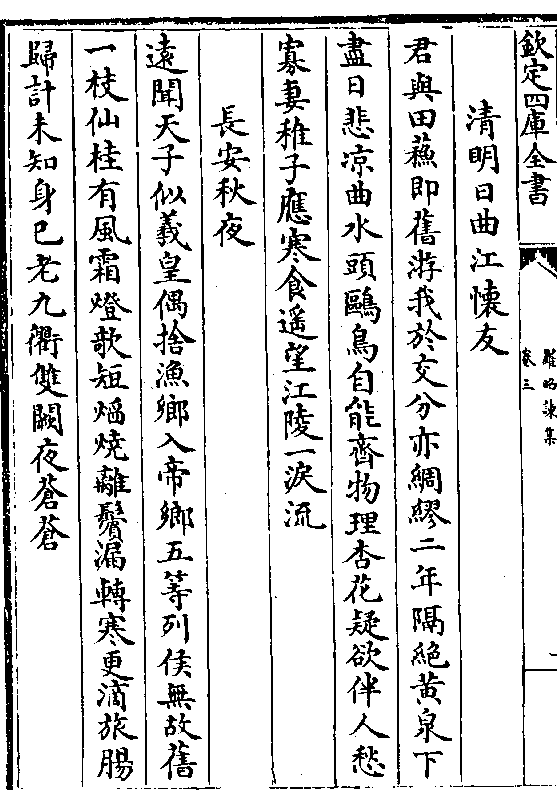 欽定四庫全書
羅昭諫集
卷三
清明日曲江懷友
君與田蘓即舊游我於交分亦綢繆二年隔絶黄泉下
盡日悲凉曲水頭鷗鳥自能齊物理杏花疑欲伴人愁
寡妻稚子應寒食遥望江陵一淚流
長安秋夜
遠聞天子似羲皇偶捨漁鄉入帝鄉五等列侯無故舊
一枝仙桂有風霜燈歌短熖燒離鬢漏轉寒更滴旅腸
歸計未知身已老九衢雙闕夜蒼蒼